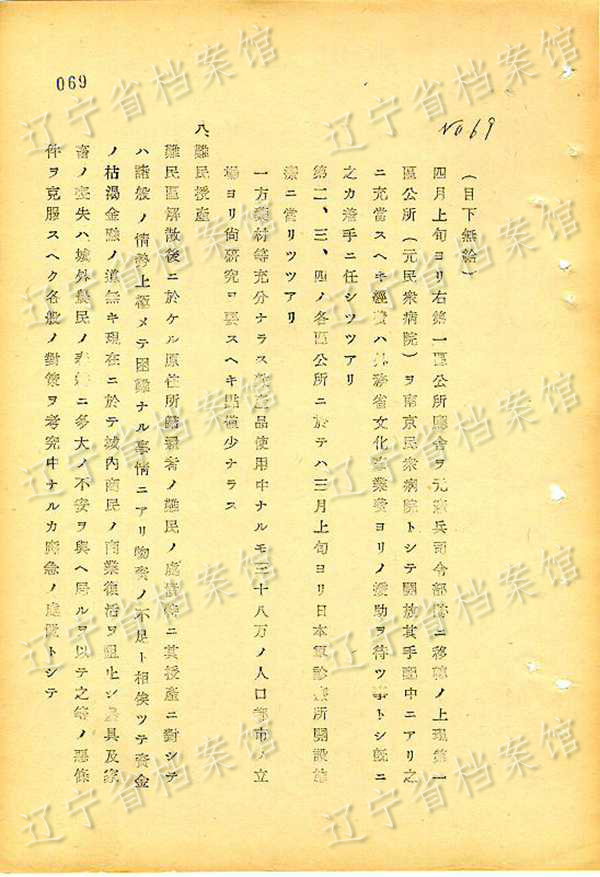 069
No 69
(目下無給)
四月上旬ヨリ右第一區公所廳舎ヲ元憲兵司令部跡ニ移轉ノ上現第一
區公所(元民衆病院)ヲ南京民衆病院トシテ開放其手配中ニアリ之
ニ充當スヘキ經費ハ外務省文化事業費ヨリノ援助ヲ待ツ事トシ既ニ
之カ着手ニ任シツツアリ
第二、三、四ノ各區公所ニ於テハ三月上旬ヨリ日本軍診療所開設施
療ニ當リツツアリ
一方藥材等充分ナラス 産品使用中ナルモ三十八万ノ人口都市ノ立
場ヨリ尚研究ヲ要スヘキ點僅少ナラス
八、難民授産
難民區解散後ニ於ケル原住所歸還者ノ難民ノ處 ニ其授産ニ對シテ
ハ諸般ノ情勢上極メテ困難ナル事情ニアリ物資ノ不足ト相俟ツテ資金
ノ枯渇金融ノ道無キ現在ニ於テ城内商民ノ商業復活ヲ阻止シ農具及家
畜ノ喪失ハ城外農民ノ ニ多大ノ不安ヲ與ヘ居ルヲ以テ之等ノ悪條
件ヲ克服スヘク各般ノ對策ヲ考究中ナルカ應急ノ處置トシテ
辽宁省档案馆
辽宁省档案馆
辽宁省档案馆
辽宁省档案馆
辽宁省档案馆
辽宁省档案馆